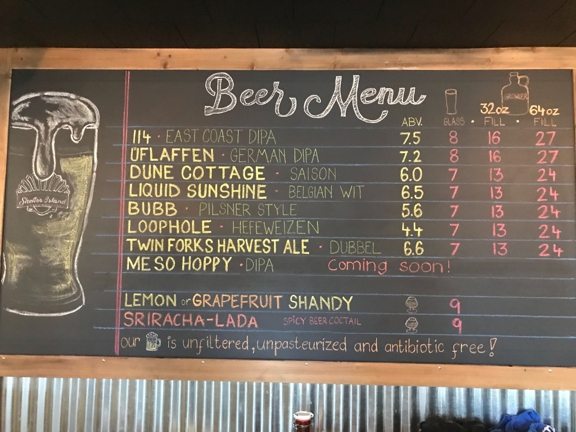 Beer Menu
GROWLER
32oz 64oz
ABV. GLASS FILL FILL
114 • EAST COAST DIPA 7.5 8 16 27
ÜFLAFFEN • GERMAN DIPA 7.2 8 16 27
DUNE COTTAGE • SAISON 6.0 7 13 24
LIQUID SUNSHINE • BELGIAN WIT 6.5 7 13 24
BUBB • PILSNER STYLE 5.6 7 13 24
LOOPHOLE • HEFEWEIZEN 4.4 7 13 24
TWIN FORKS HARVEST ALE • DUBBEL 6.6 7 13 24
MESO HOPPY • DIPA Coming soon!
Shelter Island
LEMON or GRAPEFRUIT SHANDY 9
SRIRACHA-LADA SPICY BEER COCTAIL 9
our is unfiltered, unpasteurized and antibiotic free!